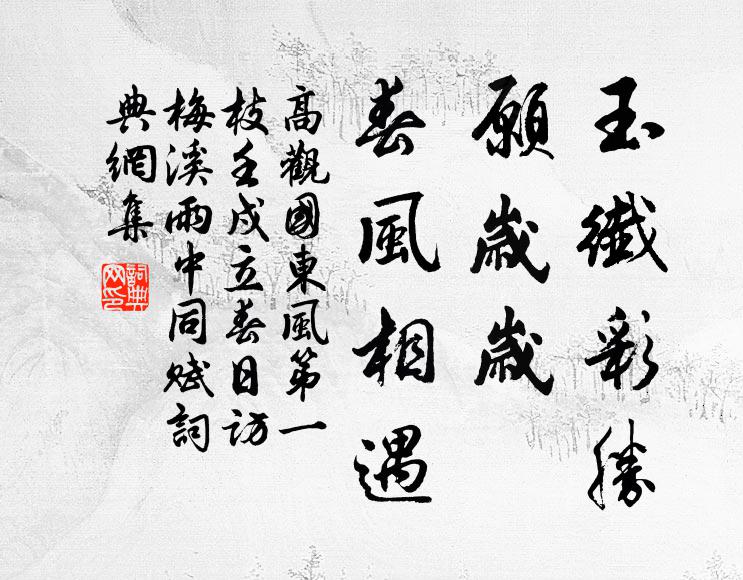 玉纖彩勝
願歲歲
春風相遇
高觀國東風第一
枝壬戌立春日訪
梅溪雨中同賦詞
典網集
詞典網印